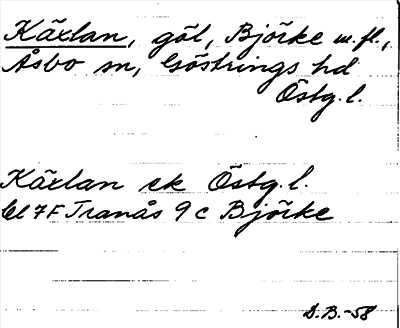 Käxlan, göl, Björke m. fl.,
Åsbo sn, Göstrings hd
Östg. l.
Käxlan ek Östg. l.
bl 7F Tranås 9 c Björke
S.B.-58